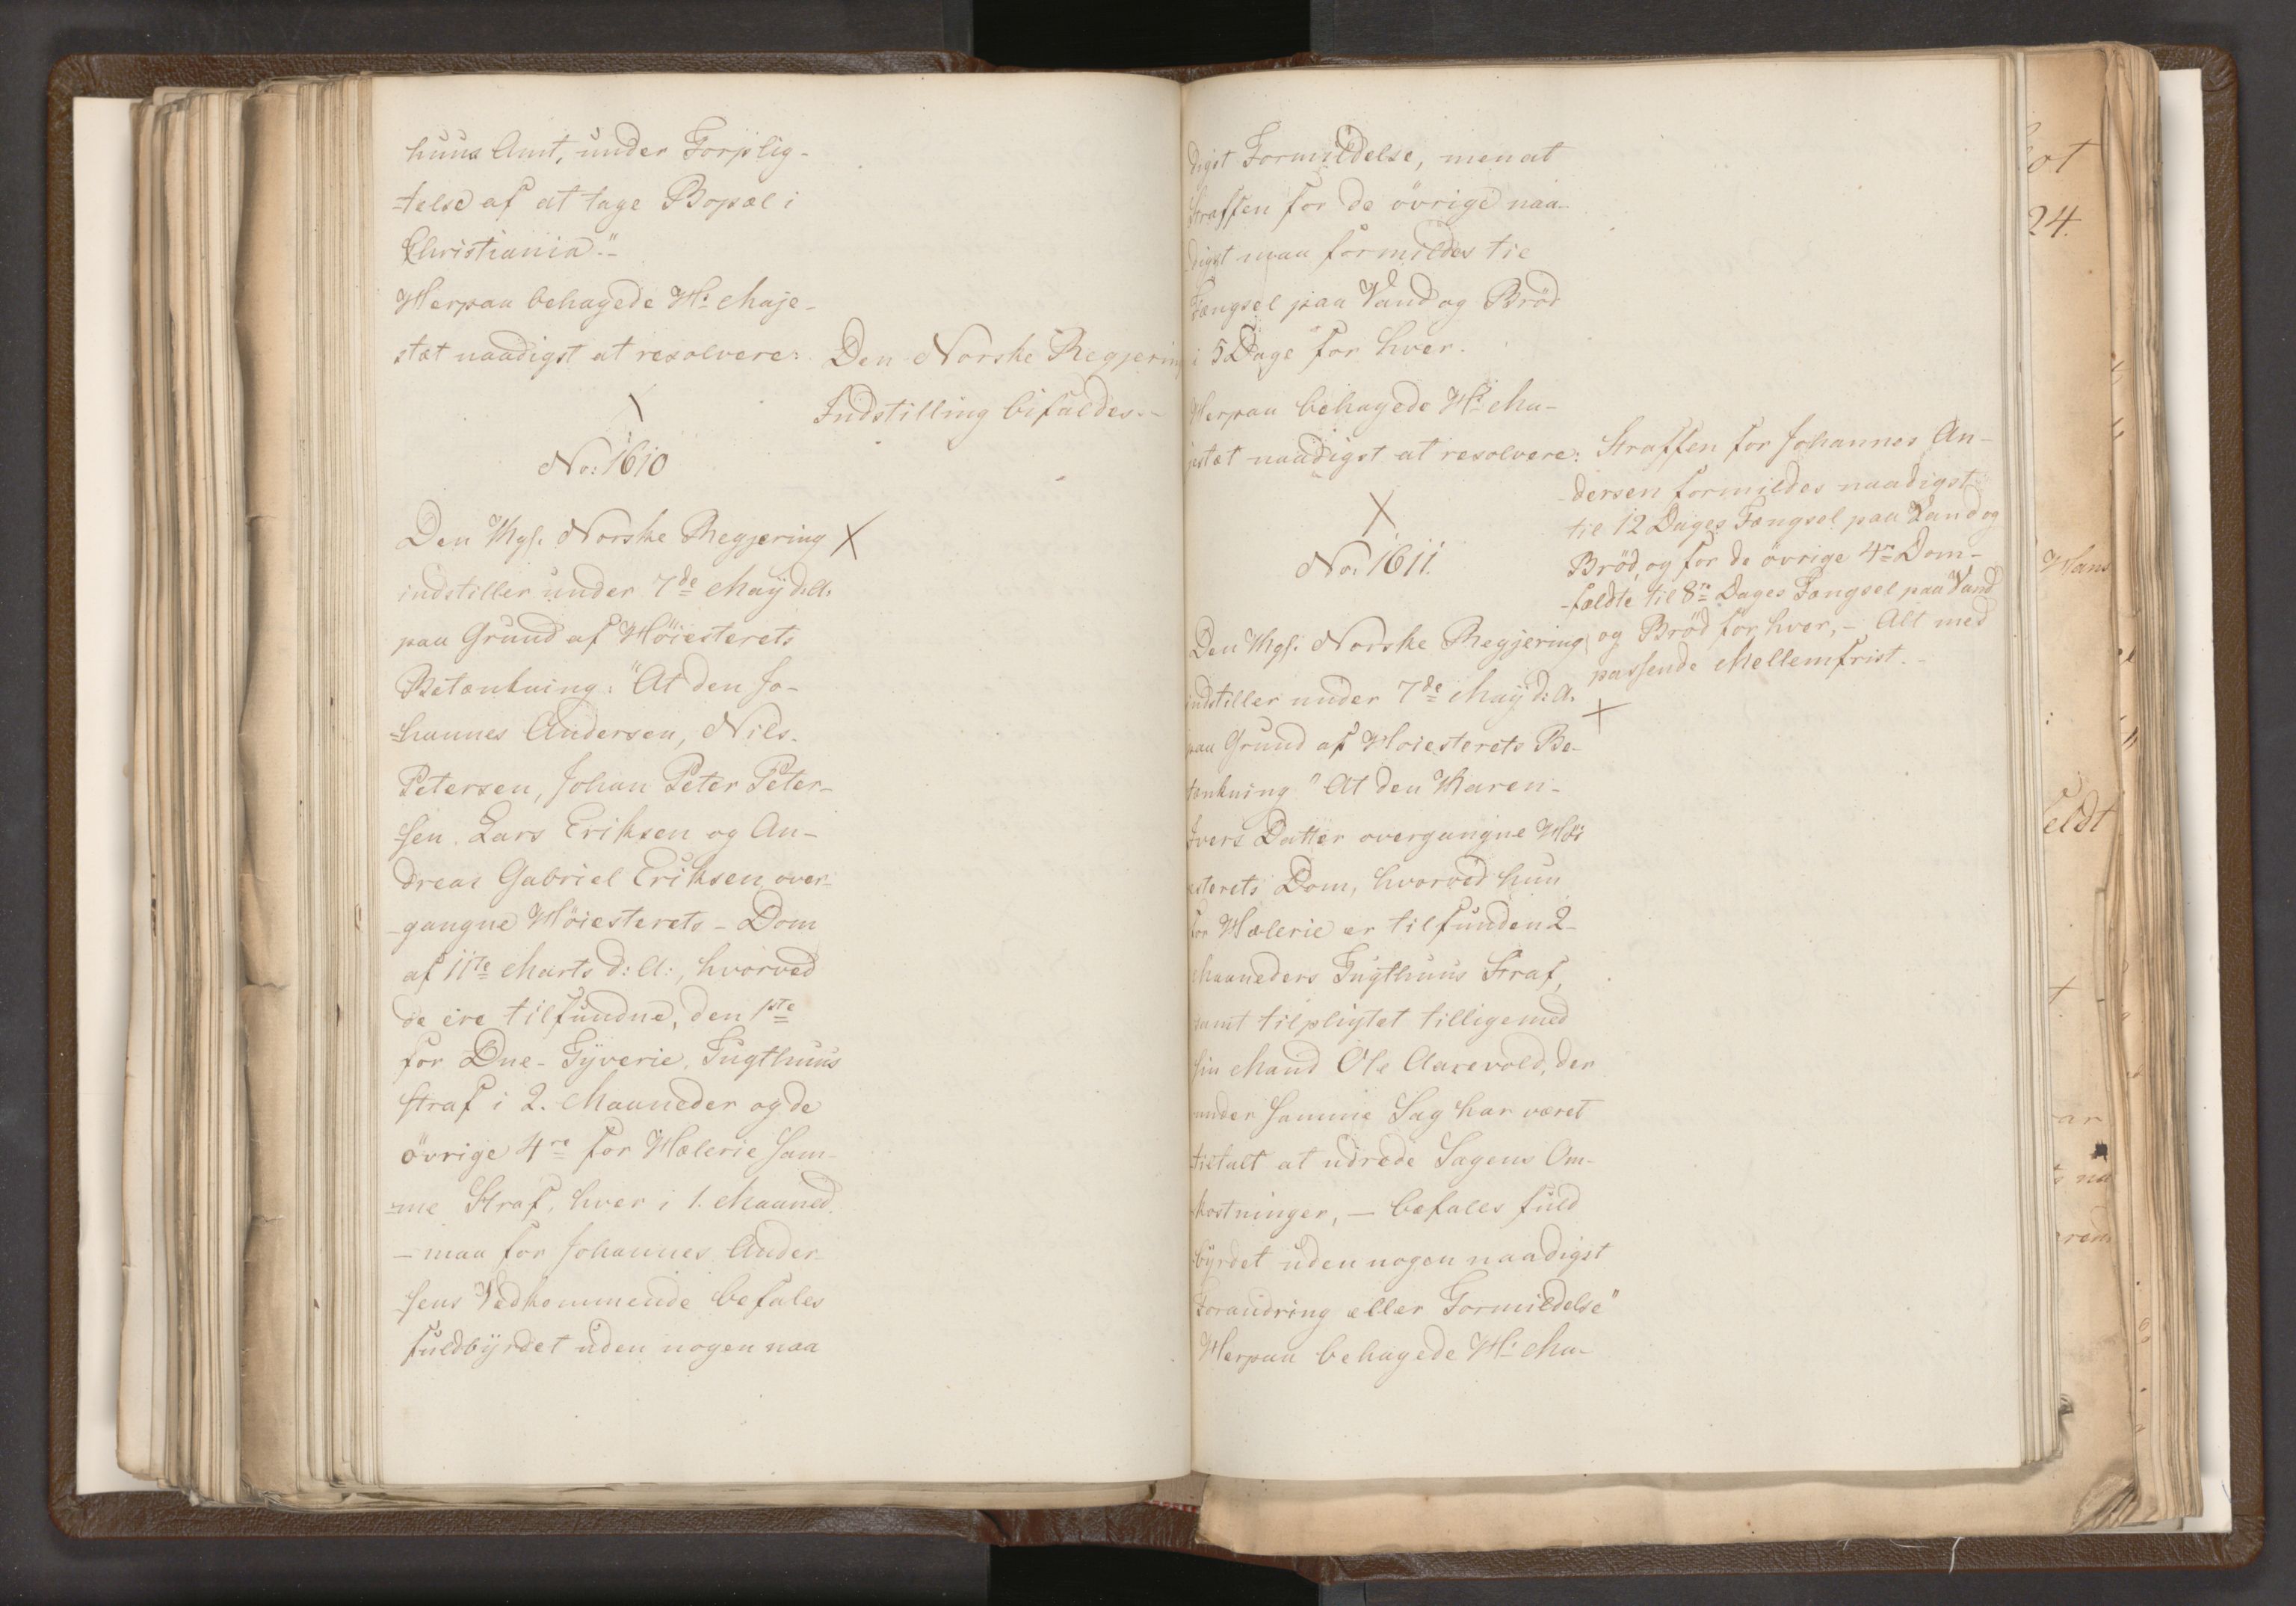 huus Amt, under Forplig-
-telse af at tage Bopæl i
Christiania."-
Herpaa behagede Hs Maje-
stæt naadigst at resolvere:
Den Norske Regjering
Indstilling bifaldes.-
No: 1610
Den Kgl. Norske Regjering
indstiller under 7de Maÿ d: A.
paa Grund af Höiesterets
Betænkning: "At den Jo-
-hannes Andersen, Nils
Petersen, Johan Peter Peter-
sen, Lars Eriksen og An-
dreas Gabriel Eriksen over-
-gangne Höiesterets-Dom
af 11te Marts d: A:, hvorved
de ere tilfundne, den 1ste
for Due-Tÿverie, Tugthuus
straf i 2. Maaneder og de
övrige 4re for Hælerie sam-
-me Straf, hver i 1. Maaned.
- maa for Johannes Ander-
sens Vedkommende befales
fuldbÿrdet uden nogen naa
digst Formildelse, men at
Straffen for de övrige naa-
-digst maa formildes til
Fængsel paa Vand og Bröd
i 5 Dage for hver.
Herpaa behagede Hs Ma-
jestæt naadigst at resolvere:
Straffen for Johannes An-
-dersen formildes naadigst
til 12 Dages Fængsel paa Vand og
Bröd, og for de övrige 4re Dom-
-fældte til 8te Dages Fængsel paa Vand
og Bröd for hver,- Alt med
passende Mellemfrist.-
No: 1611.
Den Kgl: Norske Regjering
indstiller under 7de Maÿ d: A.
paa Grund af Höiesterets Be-
tænkning "At den Karen
Ivers Datter overgangne Höi
esterets Dom, hvorved hun
for Hælerie er tilfunden 2
Maaneders Tugthuus Straf,
samt tilpligtet tilligemed
sin Mand Ole Aasevold, der
under samme Sag har været
tiltalt at udrede Sagens Om-
kostninger, - befales fuld
bÿrdet uden nogen naadigst
Forandring eller Formildelse"
Herpaa behagede Hs Ma-
ot
24.
Hans
eldt